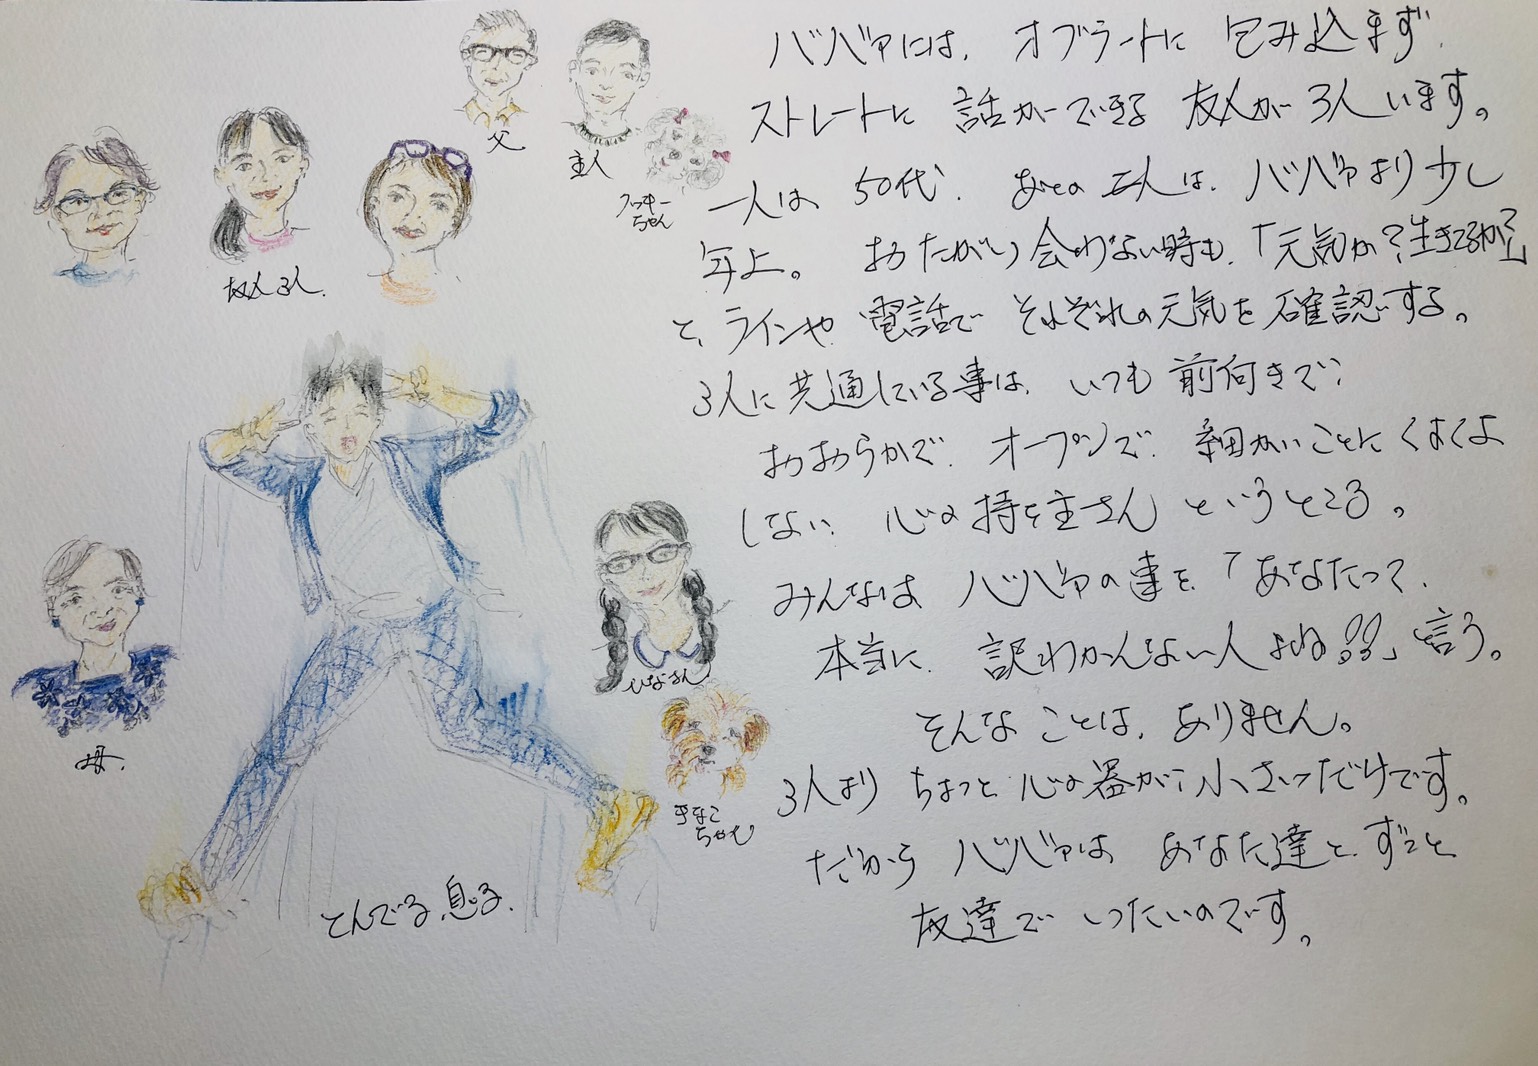 父
主人
クッキー
ちゃん
友人3人
ひなさん
母
きなこ
ちゃん
とんでる息子
ババァには、オブラートに包み込まず
ストレートに話ができる友人が3人います。
一人は50代、あとの二人は、ババァより少し
年上。おたがい会わない時も、「元気か?生きてるか?」
と、ラインや電話でそれぞれの元気を確認する。
3人に共通している事は、いつも前向きで、
おおらかで、オープンで、細かいことにくよくよ
しない心の持ち主さんというところ。
みんなはババァの事を「あなたって、
本当に、訳わかんない人よね!!」と言う。
そんなことは、ありません。
3人よりちょっと心の器が小さいだけです。
だからババァはあなた達とずっと
友達でいたいのです。